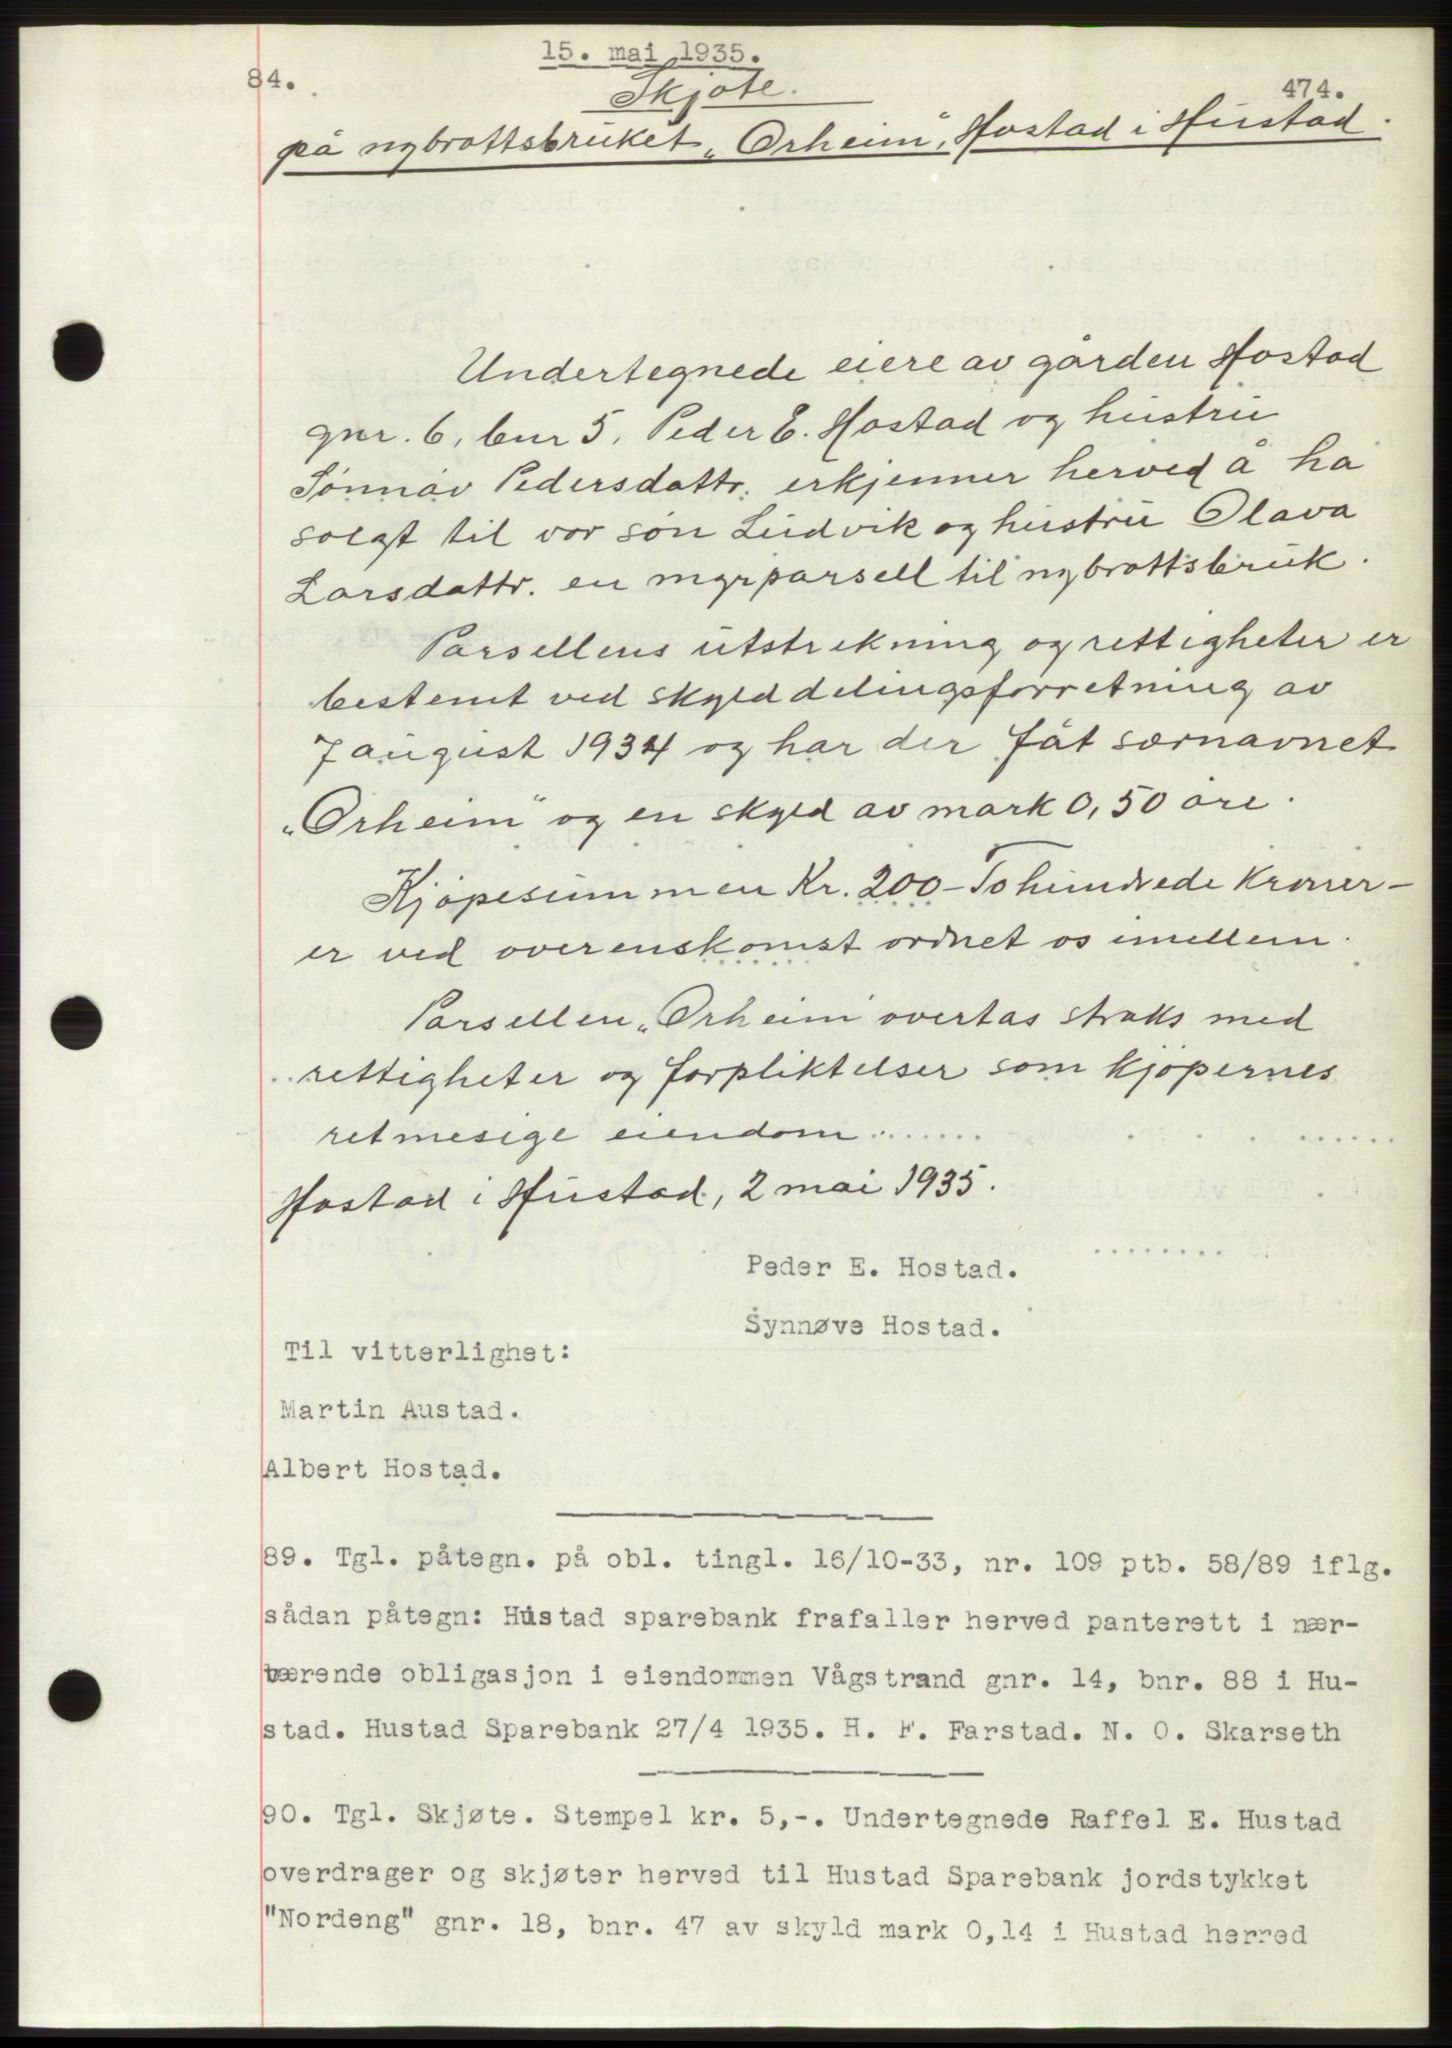 15. mai 1935.
84.
474.
Skjøte.
på nybrottsbruket „Orheim", Hostad i Hustad.
Undertegnede eiere av gården Hostad
gnr. 6, bnr 5, Peder E. Hostad og hustru
Sønnøv Pedersdattr. erkjenner herved å ha
solgt til vor søn Ludvik og hustru Olava
Larsdattr. en myrparsell til nybrottsbruk.
Parsellens utstrekning og rettigheter er
bestemt ved skylddelingsforretning av
7 august 1934 og har der fåt særnavnet
„Orheim" og en skyld av mark 0,50 øre.
Kjøpesummen Kr. 200 - Tohundrede Kroner -
er ved overenskomst ordnet os imellem.
Parsellen „Orheim" overtas straks med
rettigheter og forpliktelser som kjøpernes
retmesige eiendom.......
Hostad i Hustad, 2 mai 1935.
Peder E. Hostad.
Synnøve Hostad.
Til vitterlighet:
Martin Austad.
Albert Hostad.
89. Tgl. påtegn. på obl. tingl. 16/10-33, nr. 109 ptb. 58/89 iflg.
sådan påtegn: Hustad sparebank frafaller herved panterett i nær-
værende obligasjon i eiendommen Vågstrand gnr. 14, bnr. 88 i Hu-
stad. Hustad Sparebank 27/4 1935. H. F. Farstad. N. O. Skarseth
90. Tgl. Skjøte. Stempel kr. 5,-. Undertegnede Raffel E. Hustad
overdrager og skjøter herved til Hustad Sparebank jordstykket
"Nordeng" gnr. 18, bnr. 47 av skyld mark 0,14 i Hustad herred